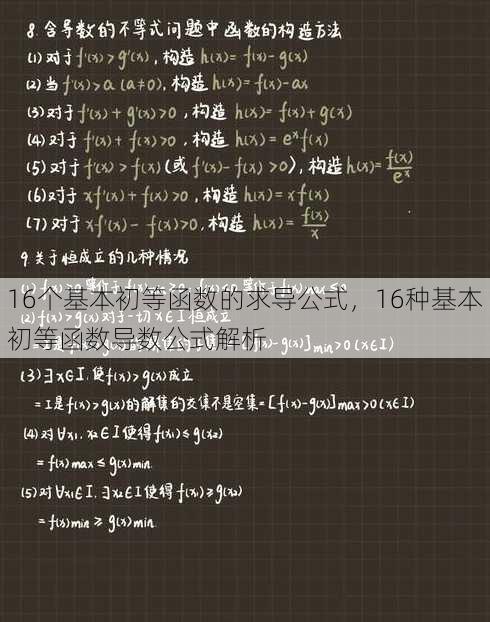 8.含导数的不等式问题中函数的构造方法
(1)对于f'(x)>g'(x),构造h(x)=f(x)-g(x)
(2)当f'(x)>a(a≠0),构造h(x)=f(x)-ax
(3)对于f'(x)+g'(x)>0,构造h(x)=f(x)+g(x)
(4)对于f'(x)+f(x)>0,构造h(x)=eˣf(x)
(5)对于f'(x)>f(x)(或f'(x)-f(x)>0),构造h(x)=f(x)/eˣ
(6)对于xf'(x)+f(x)>0,构造h(x)=xf(x)
(7)对于xf'(x)-f(x)>0,构造h(x)=f(x)/x
9.关于恒成立的几种情况
16个基本初等函数的求导公式，16种基本
(2)f(x)>g(x)对于一切x∈I恒成立
初等函数导数公式解析
-g(x)]min>0(x∈I)
(3)∃x∈I,使f(x)>g(x)成立
=I是f(x)>g(x)的解集的交集不是空集=[f(x)-g(x)]max>0(x∈I)
(4)对∀x₁,x₂∈I使得f(x₁)≤g(x₂)
=f(x)max≤g(x)min
(5)对∀x₁∈I,∃x₂∈I使得f(x₁)≥g(x₂)
=f(x)min≥g(x)min